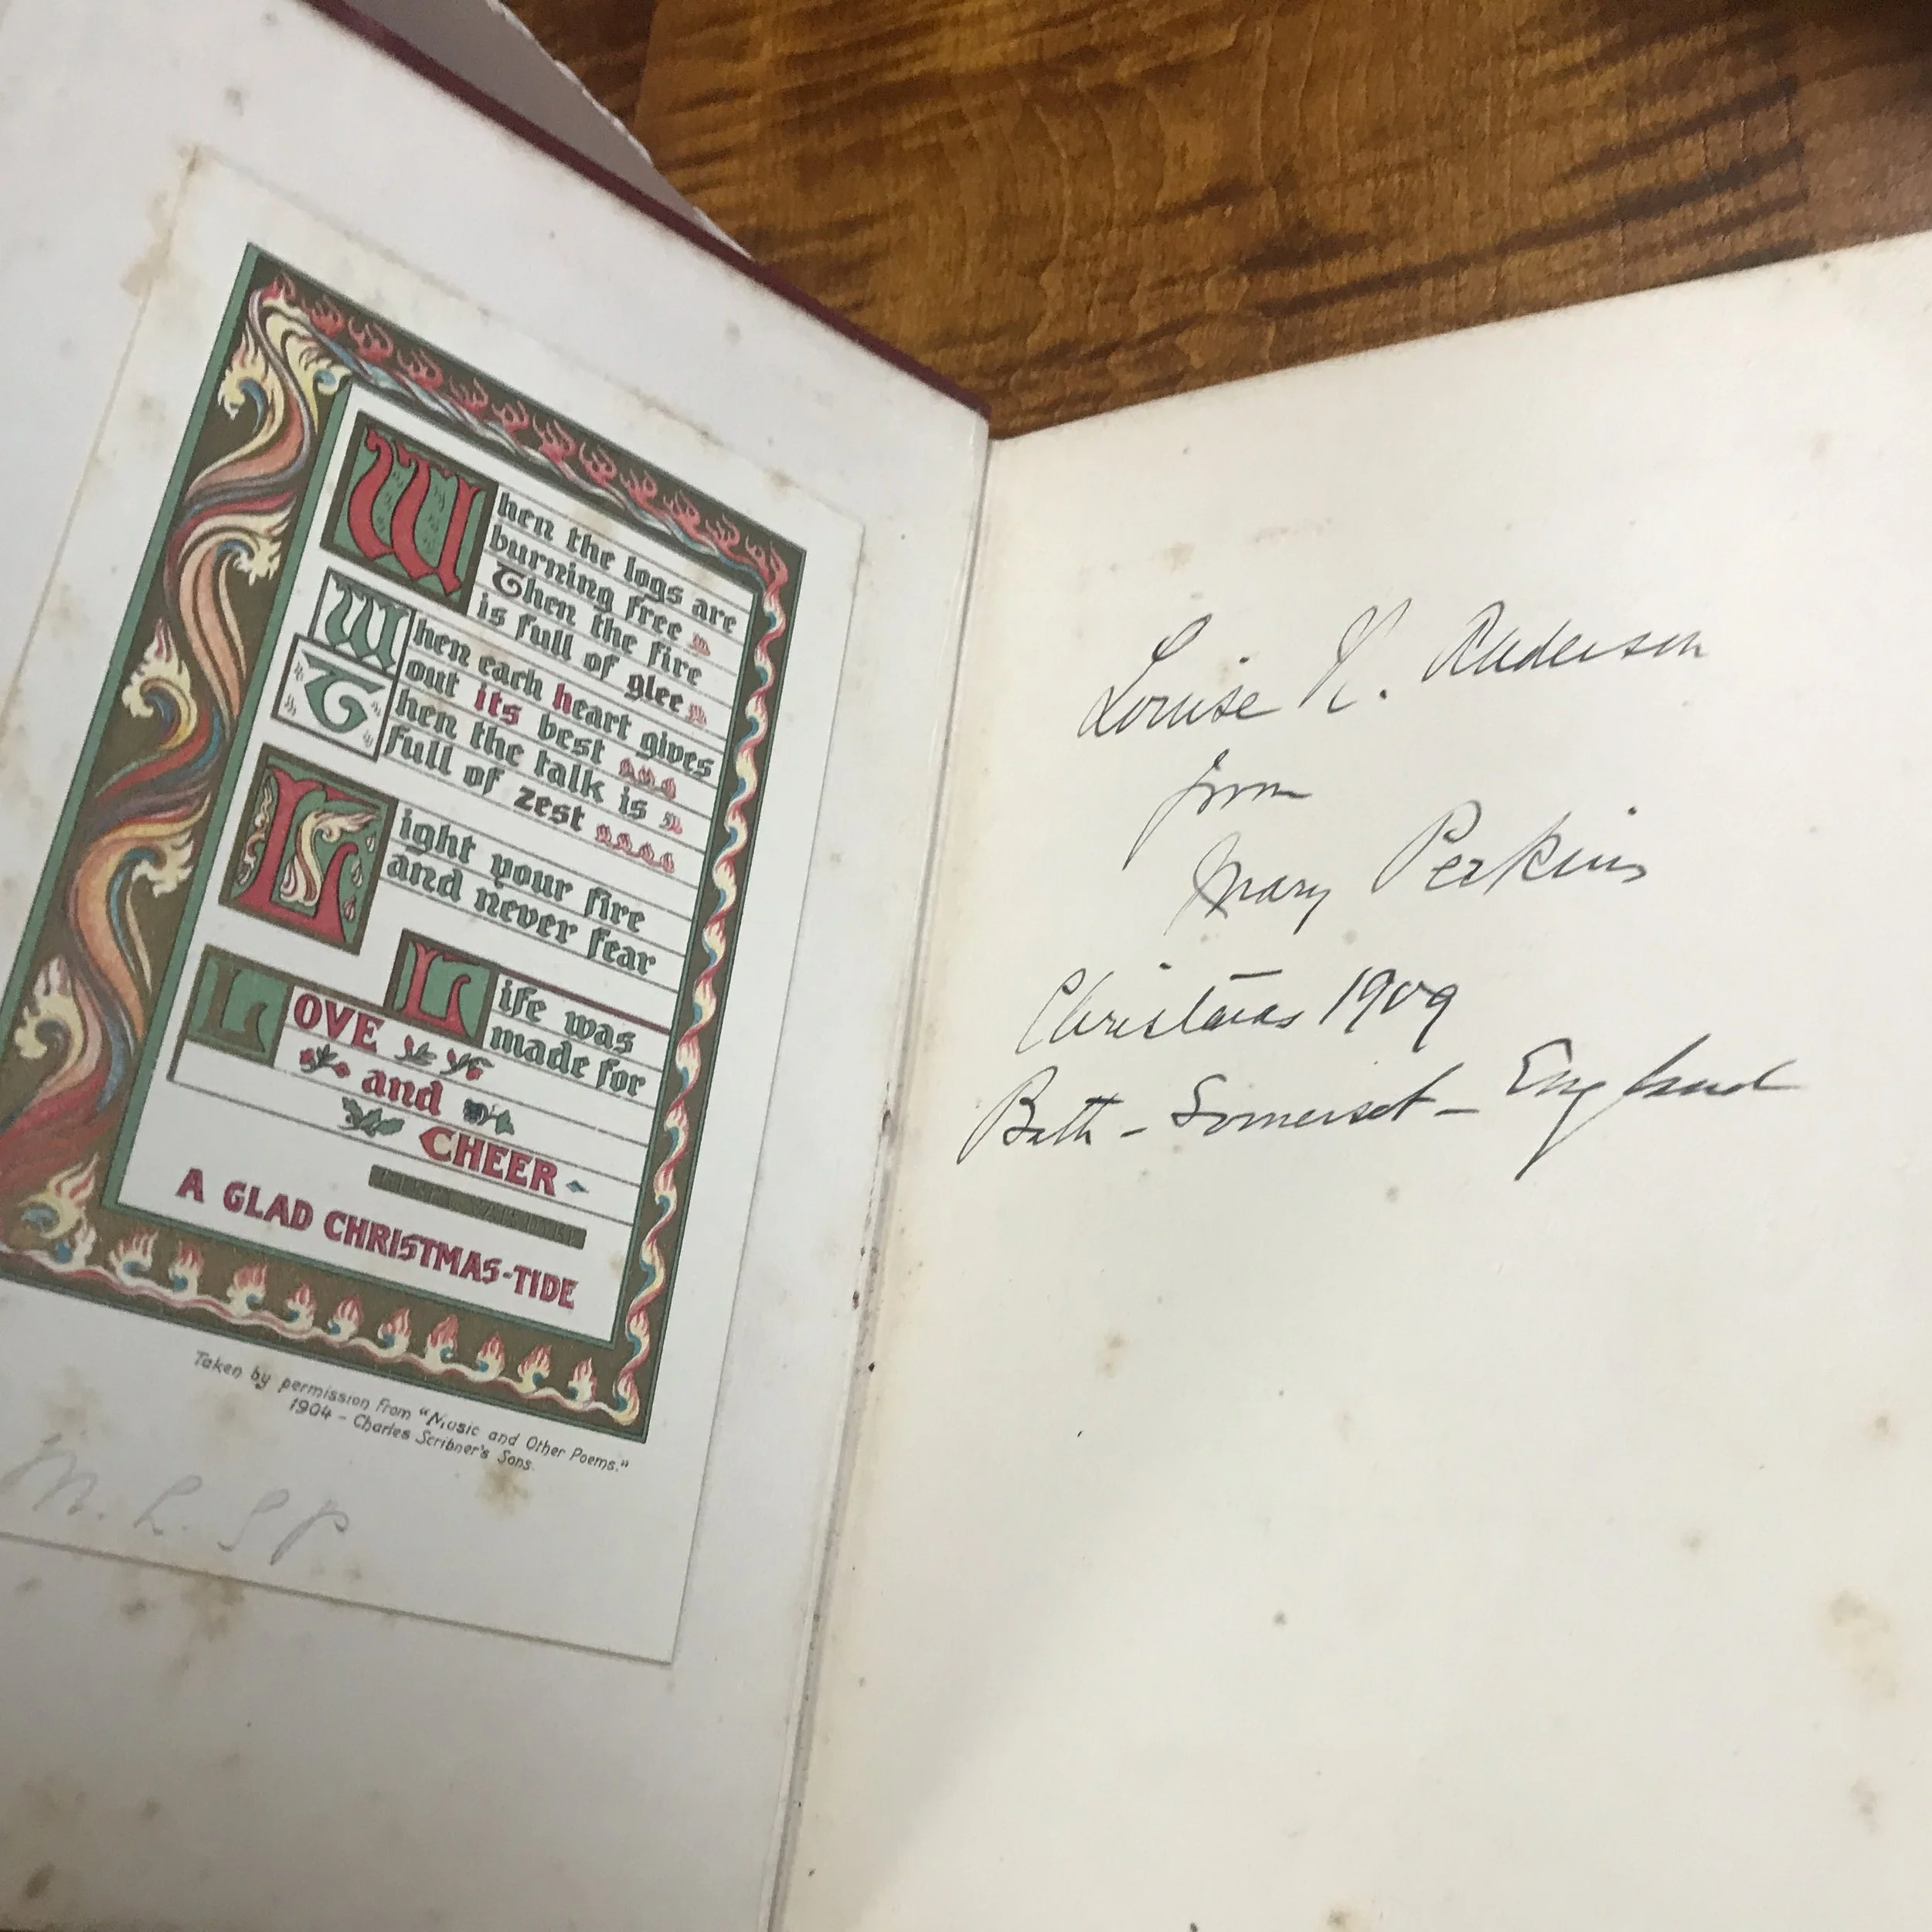 When the logs are
burning free
Then the fire
is full of glee
When each heart gives
out its best
Then the talk is
full of zest
Light your fire
and never fear
Life was
made for
LOVE
and
CHEER
A GLAD CHRISTMAS-TIDE
Taken by permission from "Music and Other Poems."
1904 - Charles Scribner's Sons.
M. L. S P
Louise K. Anderson
from
Mary Perkins
Christmas 1909
Bath - Somerset - England